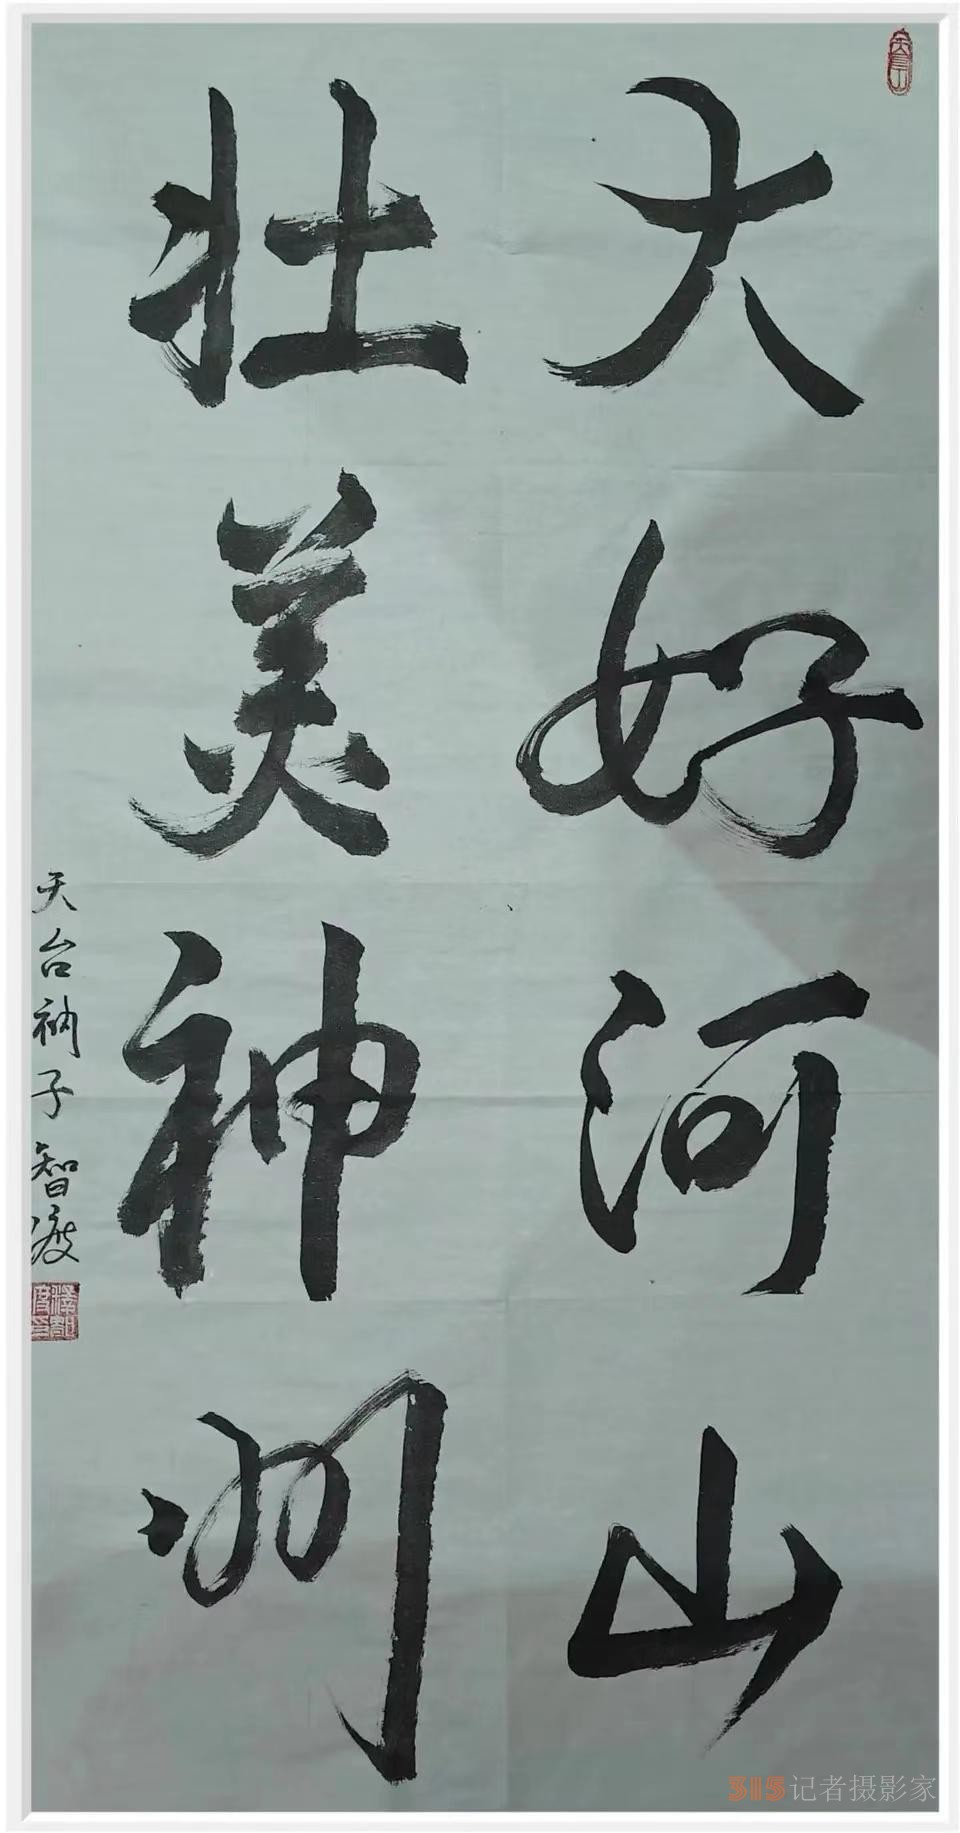 大好河山
壮美神州
天台衲子智渡
315记者摄影家